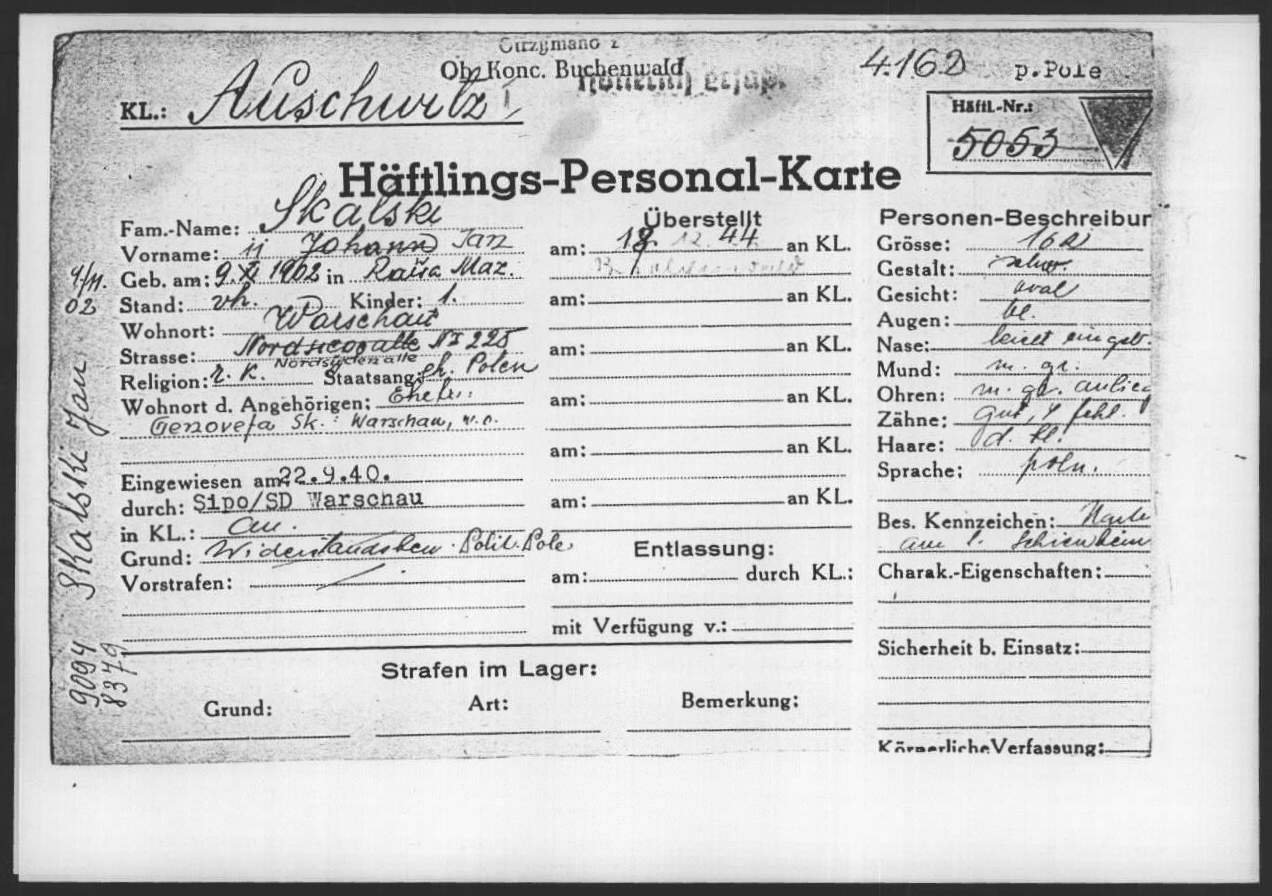 Otrzymano z
Ob. Konc. Buchenwald
4.162 p.Pole
KL.: Auschwitz I
Häftl.-Nr.:
5053
Häftlings-Personal-Karte
Fam.-Name: Skalski
Vorname: Johann Jan
Geb. am: 9. XI 1902 in Maz.
Stand: vh. Kinder: 1.
Wohnort: Warschau
Strasse: № 225
Religion: r. K. Staatsang. Polen
Wohnort d. Angehörigen: Ehefr.:
Genovefa Sk.: Warschau, w.o.
Eingewiesen am: 22.9.40.
durch: Sipo/SD Warschau
in KL.: au.
Grund: Widerstandsbew. Polit. Pole
Vorstrafen:
Überstellt
am: 12. 44 an KL.
am: an KL.
am: an KL.
am: an KL.
am: an KL.
am: an KL.
Entlassung:
am: durch KL.:
mit Verfügung v.:
Personen-Beschreibun
Grösse: 162
Gestalt: schw.
Gesicht: oval
Augen: bl.
Nase: leicht
Mund: m. gr.
Ohren: m. gr. anlieg
Zähne: gut, 4 fehl.
Haare: d. bl.
Sprache: poln.
Bes. Kennzeichen: Narbe
am l. Schienbein
Charak.-Eigenschaften:
Sicherheit b. Einsatz:
Körperliche Verfassung:
Strafen im Lager:
Grund: Art: Bemerkung:
9/11.
02
Skalski Jan
9094
8379